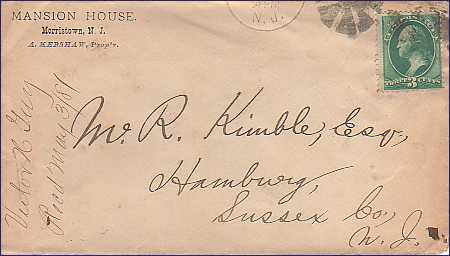 MANSION HOUSE.
Morristown, N. J.
A. KERSHAW, Prop'r.
N. J.
3
Victor H Guy
Recd May 3/81
M. R. Kimble, Esq,
Hamburg,
Sussex Co,
N. J.